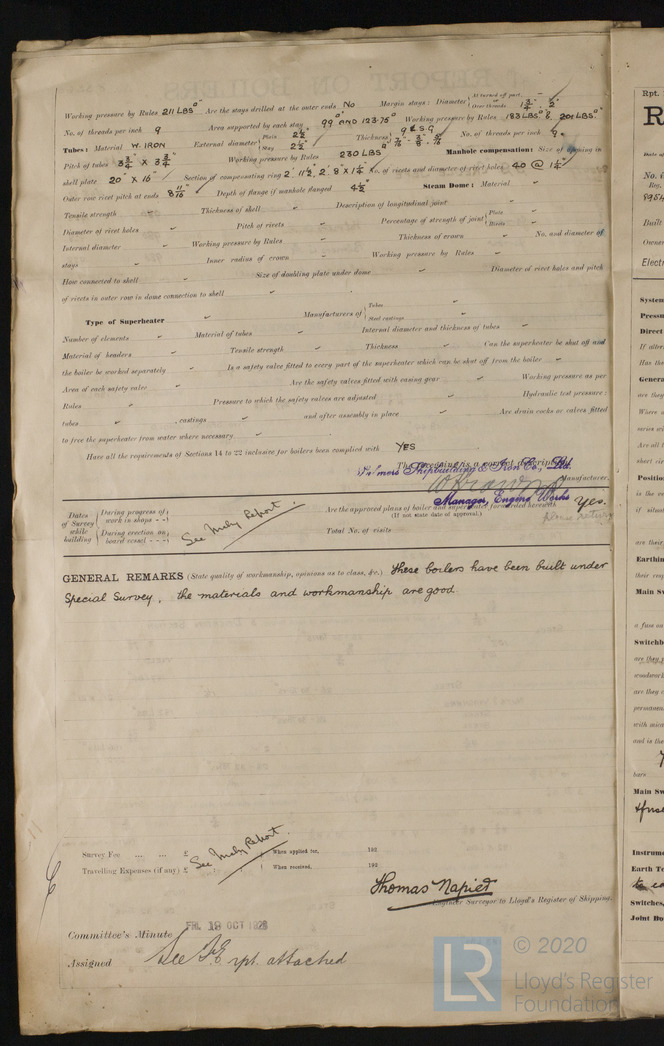 REPORT ON BOILERS
Working pressure by Rules 211 LBS □" Are the stays drilled at the outer ends No Margin stays: Diameter { At turned off part, or Over threads 1 3/4" 2"
No. of threads per inch 9 Area supported by each stay 99 □" AND 123·75 □" Working pressure by Rules 183 LBS □" & 201 LBS □"
Tubes: Material W. IRON External diameter { Plain 2 1/2" Stay 2 1/2" Thickness { 9 L.S.G 5/16" · 3/8" · 5/16" No. of threads per inch 9.
Pitch of tubes 3 3/4" X 3 3/4" Working pressure by Rules 230 LBS □" Manhole compensation: Size of opening in
shell plate 20" X 16" Section of compensating ring 2' 11 1/2" 2' 8" X 1 1/4" No. of rivets and diameter of rivet holes 40 @ 1 1/4"
Outer row rivet pitch at ends 8 11/16" Depth of flange if manhole flanged 4 1/2" Steam Dome: Material
Tensile strength Thickness of shell Description of longitudinal joint
Diameter of rivet holes Pitch of rivets Percentage of strength of joint { Plate Rivets
Internal diameter Working pressure by Rules Thickness of crown No. and diameter of
stays Inner radius of crown Working pressure by Rules
How connected to shell Size of doubling plate under dome Diameter of rivet holes and pitch
of rivets in outer row in dome connection to shell
Type of Superheater Manufacturers of { Tubes Steel castings
Number of elements Material of tubes Internal diameter and thickness of tubes
Material of headers Tensile strength Thickness Can the superheater be shut off and
the boiler be worked separately Is a safety valve fitted to every part of the superheater which can be shut off from the boiler
Area of each safety valve Are the safety valves fitted with easing gear Working pressure as per
Rules Pressure to which the safety valves are adjusted Hydraulic test pressure:
tubes , castings and after assembly in place Are drain cocks or valves fitted
to free the superheater from water where necessary
Have all the requirements of Sections 14 to 22 inclusive for boilers been complied with YES
The foregoing is a correct description,
Palmers Shipbuilding & Iron Co., Ltd.
Manufacturer.
Manager, Engine Works
Dates of Survey while building { During progress of work in shops - - During erection on board vessel - - - See Mchy Report. Are the approved plans of boiler and superheater forwarded herewith Yes.
(If not state date of approval.) please return
Total No. of visits
GENERAL REMARKS (State quality of workmanship, opinions as to class, &c.) These boilers have been built under
Special Survey, the materials and workmanship are good.
Survey Fee ... ... £ See Mchy Report. When applied for, 192
Travelling Expenses (if any) £ When received, 192
Thomas Napier
Engineer Surveyor to Lloyd's Register of Shipping.
Committee's Minute FRI. 19 OCT 1928
Assigned See F.E. rpt. attached
© 2020
LR
Lloyd's Register
Foundation
Rpt.
R
Date of
No. i
Reg.
8954
Built
Owne
Electr
System
Pressu
Direct
If alter
Has the
Genera
are they
Where a
Are all t
short cir
Position
is the se
if situat
are their
Earthin
their resp
Main Sw
a fuse on
Switchbo
are they p
woodwork
are they c
permanen
with mica
and is the
bars
Main Sw
Instrume
Earth Te
Switches,
Joint Bo